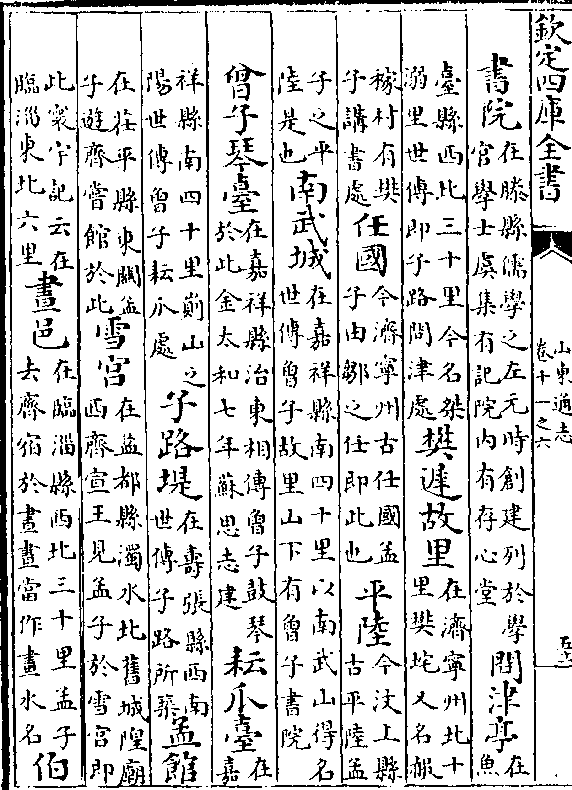 欽定四庫全書
山東通志
卷十一之六
書院
在滕縣儒學之左元時創建列於學
官學士虞集有記院内有存心堂
問津亭
在
魚
臺縣西北三十里今名桀
溺里世傳即子路問津處
樊遲故里
在濟寧州北十
里樊垞又名服
稼村有樊
子講書處
任國
今濟寧州古任國孟
子由鄒之任即此也
平陸
今汶上縣
古平陸孟
子之平
陸是也
南武城
在嘉祥縣南四十里以南武山得名
世傳曾子故里山下有曾子書院
曾子琴臺
在嘉祥縣治東相傳曾子鼓琴
於此金太和七年蘇思志建
耘瓜臺
在
嘉
祥縣南四十里山之
陽世傳曾子耘瓜處
子路堤
在壽張縣西南
世傳子路所築
孟館
在茌平縣東關孟
子遊齊嘗館於此
雪宮
在益都縣濁水北舊城隍廟
西齊宣王見孟子於雪宮即
此寰宇記云在
臨淄東北六里
晝邑
在臨淄縣西北三十里孟子
去齊宿於晝晝當作畫水名
伯